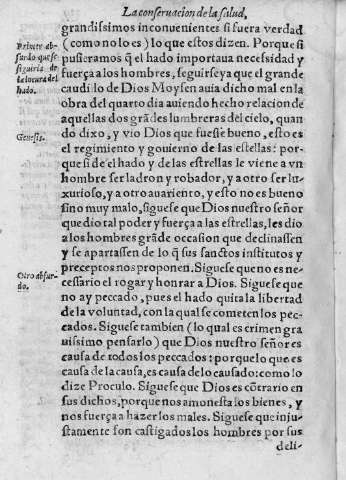 La conseruacion de la salud,
grandissimos inconuenientes si fuera verdad
(como no lo es) lo que estos dizen. Porque si
pusieramos q̃ el hado importaua necessidad y
fuerça a los hombres, seguirse ya que el grande
caudillo de Dios Moysen auia dicho mal en la
obra del quarto dia auiendo hecho relacion de
aquellas dos grãdes lumbreras del cielo, quan
do dixo, y vio Dios que fuesse bueno, esto es
el regimiento y gouierno de las estellas: por-
que si de el hado y de las estrellas le viene a vn
hombre ser ladron y robador, y a otro ser lu-
xurioso, y a otro auariento, y esto no es bueno
sino muy malo, siguese que Dios nuestro señor
que dio tal poder y fuerça a las estrellas, les dio
a los hombres grãde occasion que declinassen
y se apartassen de lo q̃ sus sanctos institutos y
preceptos nos proponen. Siguese que no es ne-
cessario el rogar y honrar a Dios. Siguese que
no ay peccado, pues el hado quita la libertad
de la voluntad, con la qual se cometen los pec-
cados. Siguese tambien (lo qual es crimen gra
uissimo pensarlo) que Dios nuestro señor es
causa de todos los peccados: porque lo que es
causa de la causa, es causa de lo causado: como lo
dize Proculo. Siguese que Dios es cõtrario en
sus dichos, porque nos amonesta los bienes, y
nos fuerça a hazer los males. Siguese que inju-
stamente son castigados los hombres por sus
deli-
Primer ab-
surdo que se
siguiria de
la locura del
hado.
Genesis.
Otro absur-
do.